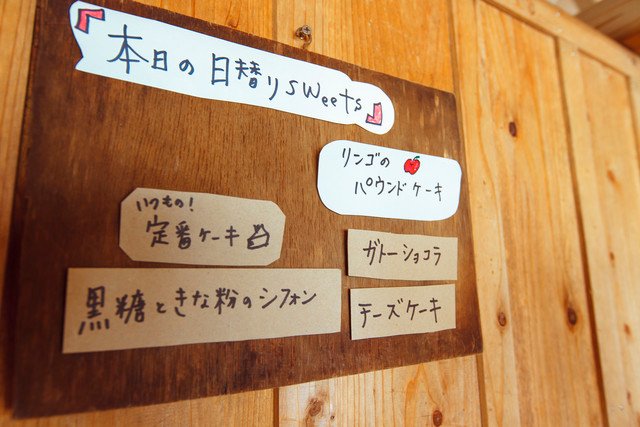 『本日の日替りsweets』
リンゴの
パウンドケーキ
いつもの!
定番ケーキ
ガトーショコラ
黒糖ときな粉のシフォン
チーズケーキ